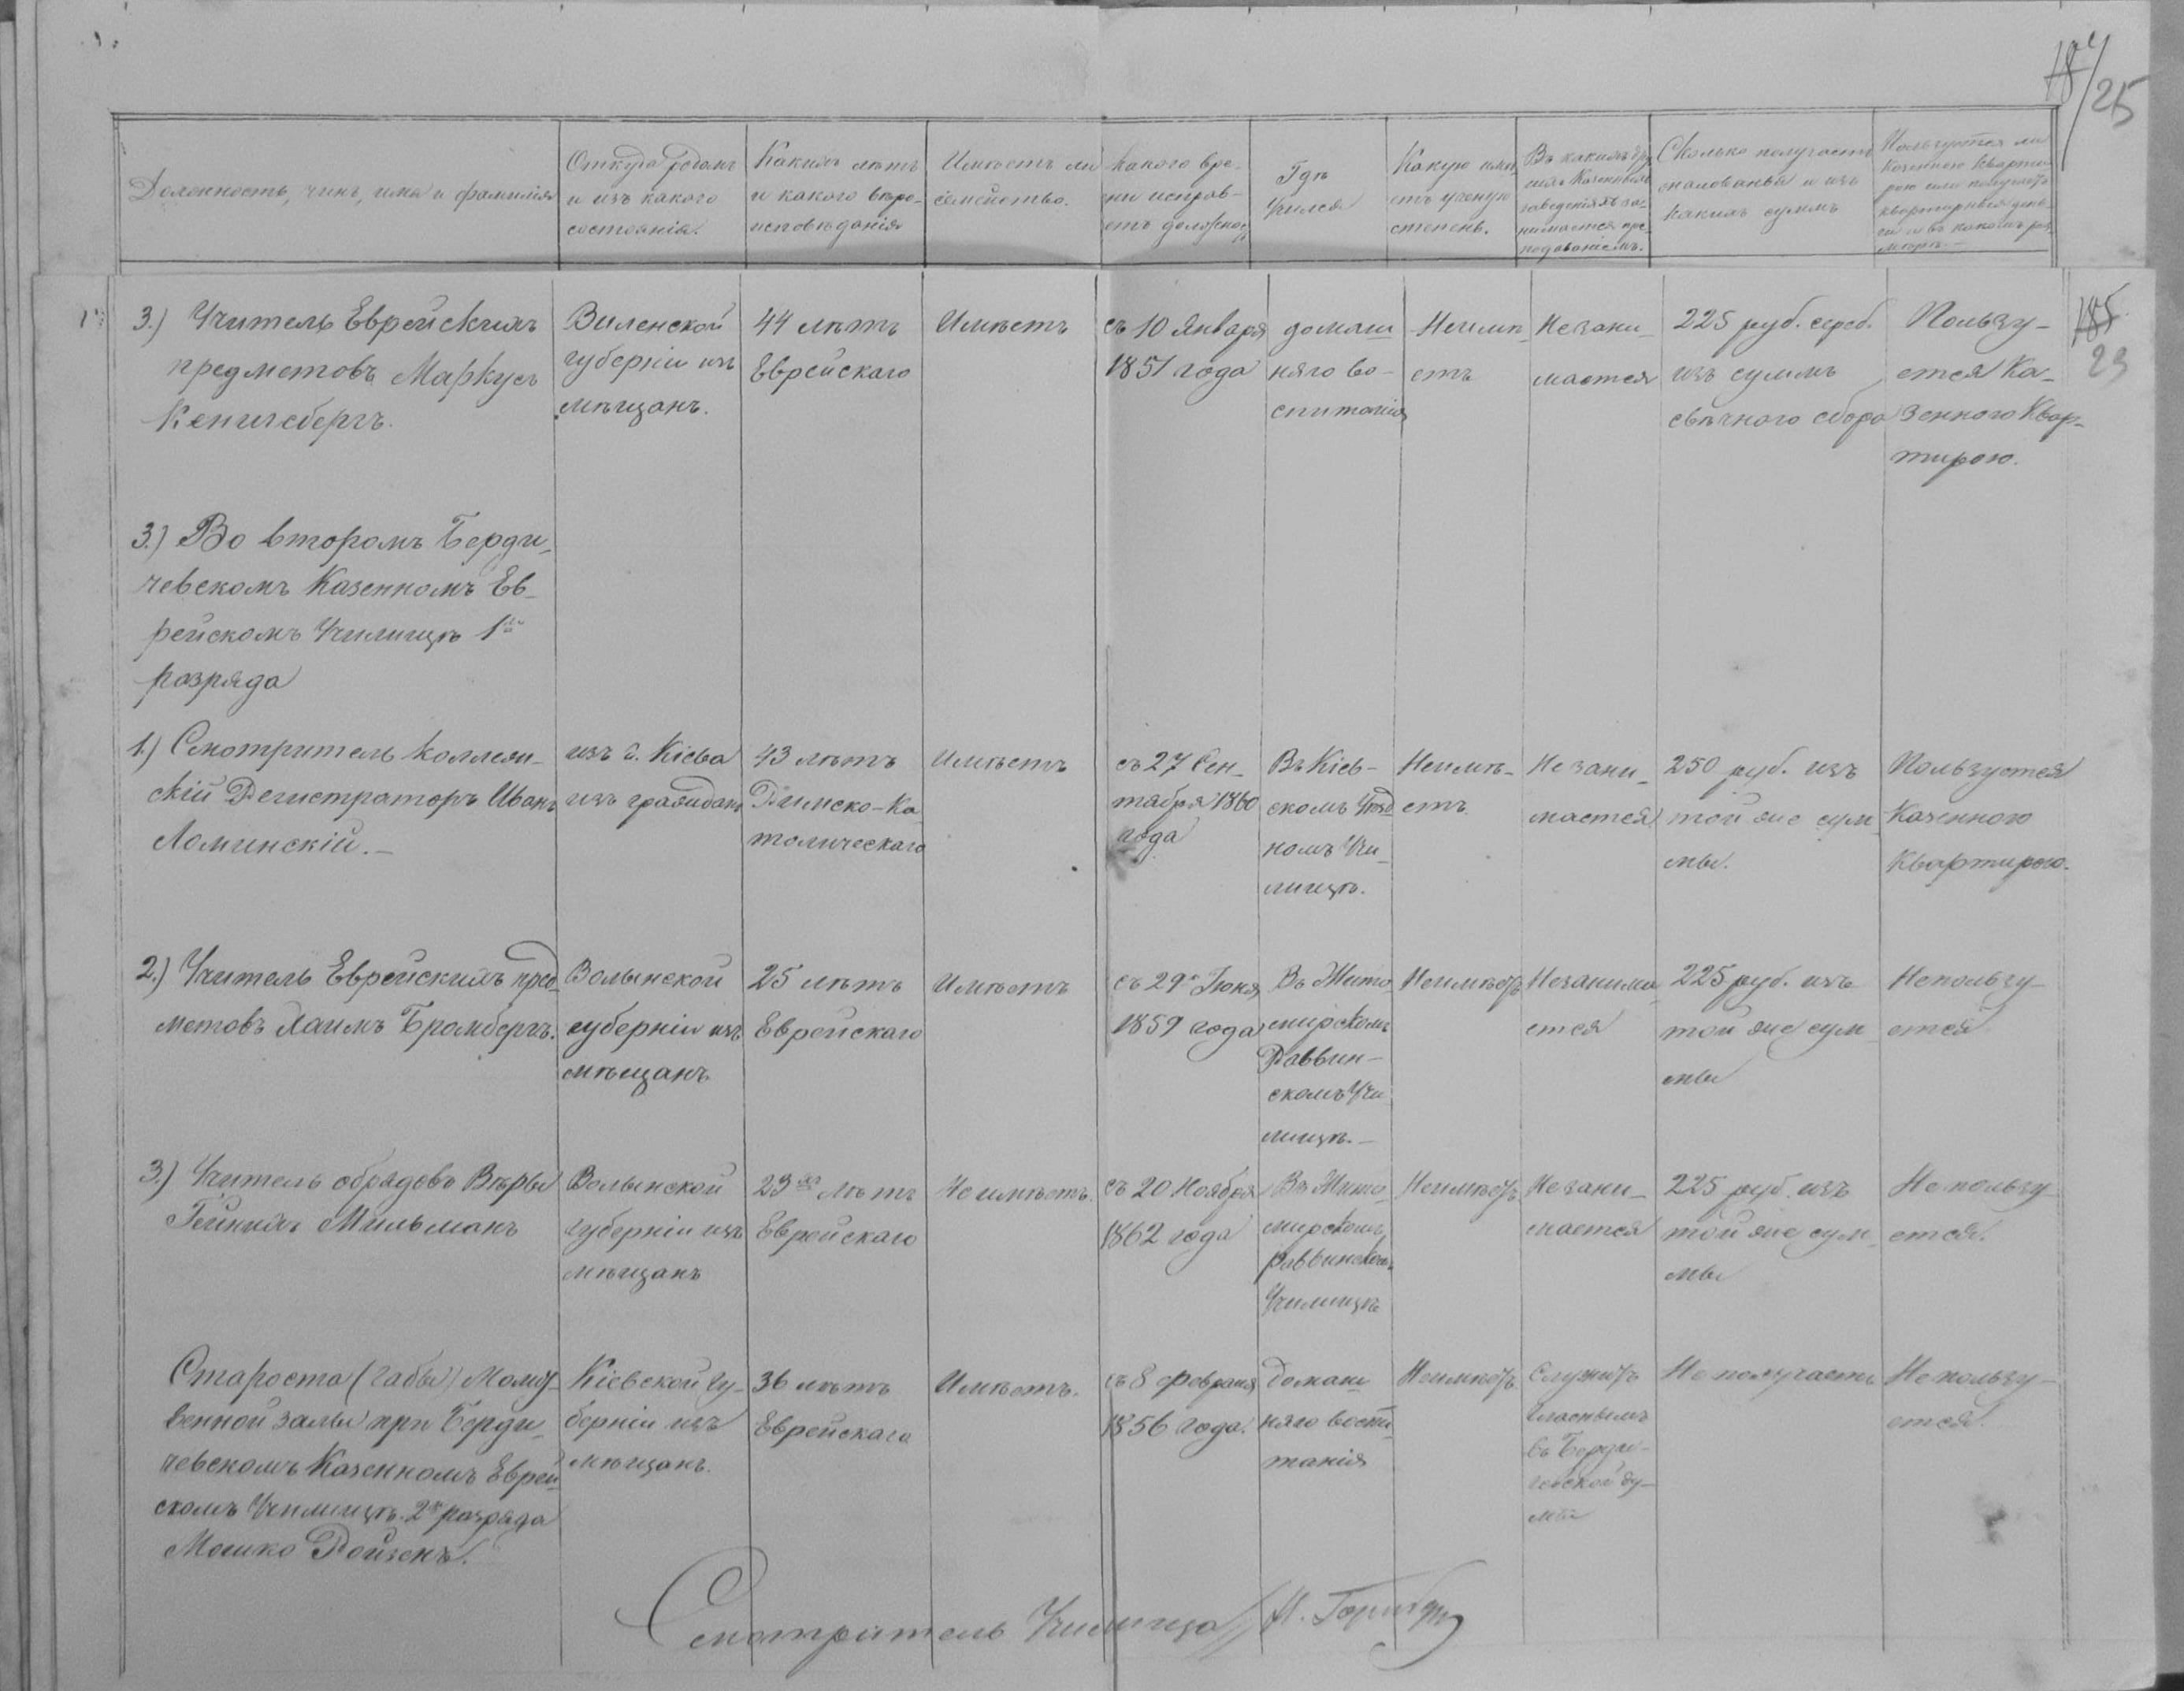 184/25
Должность, чинъ, имя и фамилія
Откуда родомъ
и изъ какого
состоянія.
Какихъ лѣтъ
и какого вѣро-
исповѣданія
Имѣетъ ли
семейство.
какого вре-
ни исправ-
етъ должнос
Гдѣ
Учился
Какую имѣ
етъ ученую
степень.
Въ какихъ дру
гихъ Казенныхъ
заведеніяхъ за-
нимается пре-
подованіемъ.
Сколько получаетъ
жалованья и изъ
какихъ суммъ
Пользуется ли
Казенною кварти
рою или получаетъ
квартирныя день
ги и въ какомъ раз
мѣрѣ.—
185
23
3.) Учитель Еврейскихъ
предметовъ Маркусъ
Кенигсбергъ.
Виленской
губерніи изъ
мѣщанъ.
44 лѣтъ
Еврейскаго
Имѣетъ
съ 10 Января
1851 года
домаш
няго во-
спитанія
Неимѣ
етъ
Незани-
мается
225 руб. сереб.
изъ суммъ
свѣчного сбора
Пользу-
ется Ка-
зенного Квар-
тирою.
3.) Во второмъ Берди-
чевскомъ Казенномъ Ев-
рейскомъ Училищѣ 1го
разряда
1.) Смотритель Коллежи-
скій Регистраторъ Иванъ
Ломинскій.—
изъ г. Кіева
изъ гражданъ
43 лѣтъ
Римско-Ка
толическаго
Имѣетъ
съ 27 Сен-
тября 1860
года
Въ Кіев-
скомъ Уѣзд
номъ Учи
лищѣ.
Неимѣ-
етъ
Незани-
мается
250 руб. изъ
той же сум
мы.
Пользуется
Казенною
Квартирою.
2.) Учитель Еврейскихъ пред
метовъ Хаимъ Бромбергъ.
Волынской
губерніи изъ
мѣщанъ
25 лѣтъ
Еврейскаго
Имѣетъ
съ 29го Іюня
1859 года
Въ Жито
мирскомъ
Раввин-
скомъ Учи
лищѣ.—
Неимѣетъ
Незанима
ется
225 руб. изъ
той же сум
мы
Непользу-
ется
3.) Учитель обрядовъ Вѣры
Гейнихъ Мильманъ
Волынской
губерніи изъ
мѣщанъ
23хъ лѣтъ
Еврейскаго
Неимѣетъ.
съ 20 Ноября
1862 года
Въ Жито-
мирскомъ
раввинскомъ
Училищѣ
Неимѣетъ
Незани-
мается
225 руб. изъ
той же сум
мы
Непользу
ется.
Староста (габы) Молит-
венной залы при Берди-
чевскомъ Казенномъ Еврей
скомъ Училищѣ 2го разряда
Мошко Ройзенъ.
Кіевской гу-
берніи изъ
мѣщанъ.
36 лѣтъ
Еврейскаго
Имѣетъ.
съ 8 февраля
1856 года.
Домаш
няго воспи
танія
Неимѣетъ
Служитъ
гласнымъ
въ Берди-
чевской ду-
мѣ
Неполучаетъ
Непользу-
ется.
Смотритель Училища